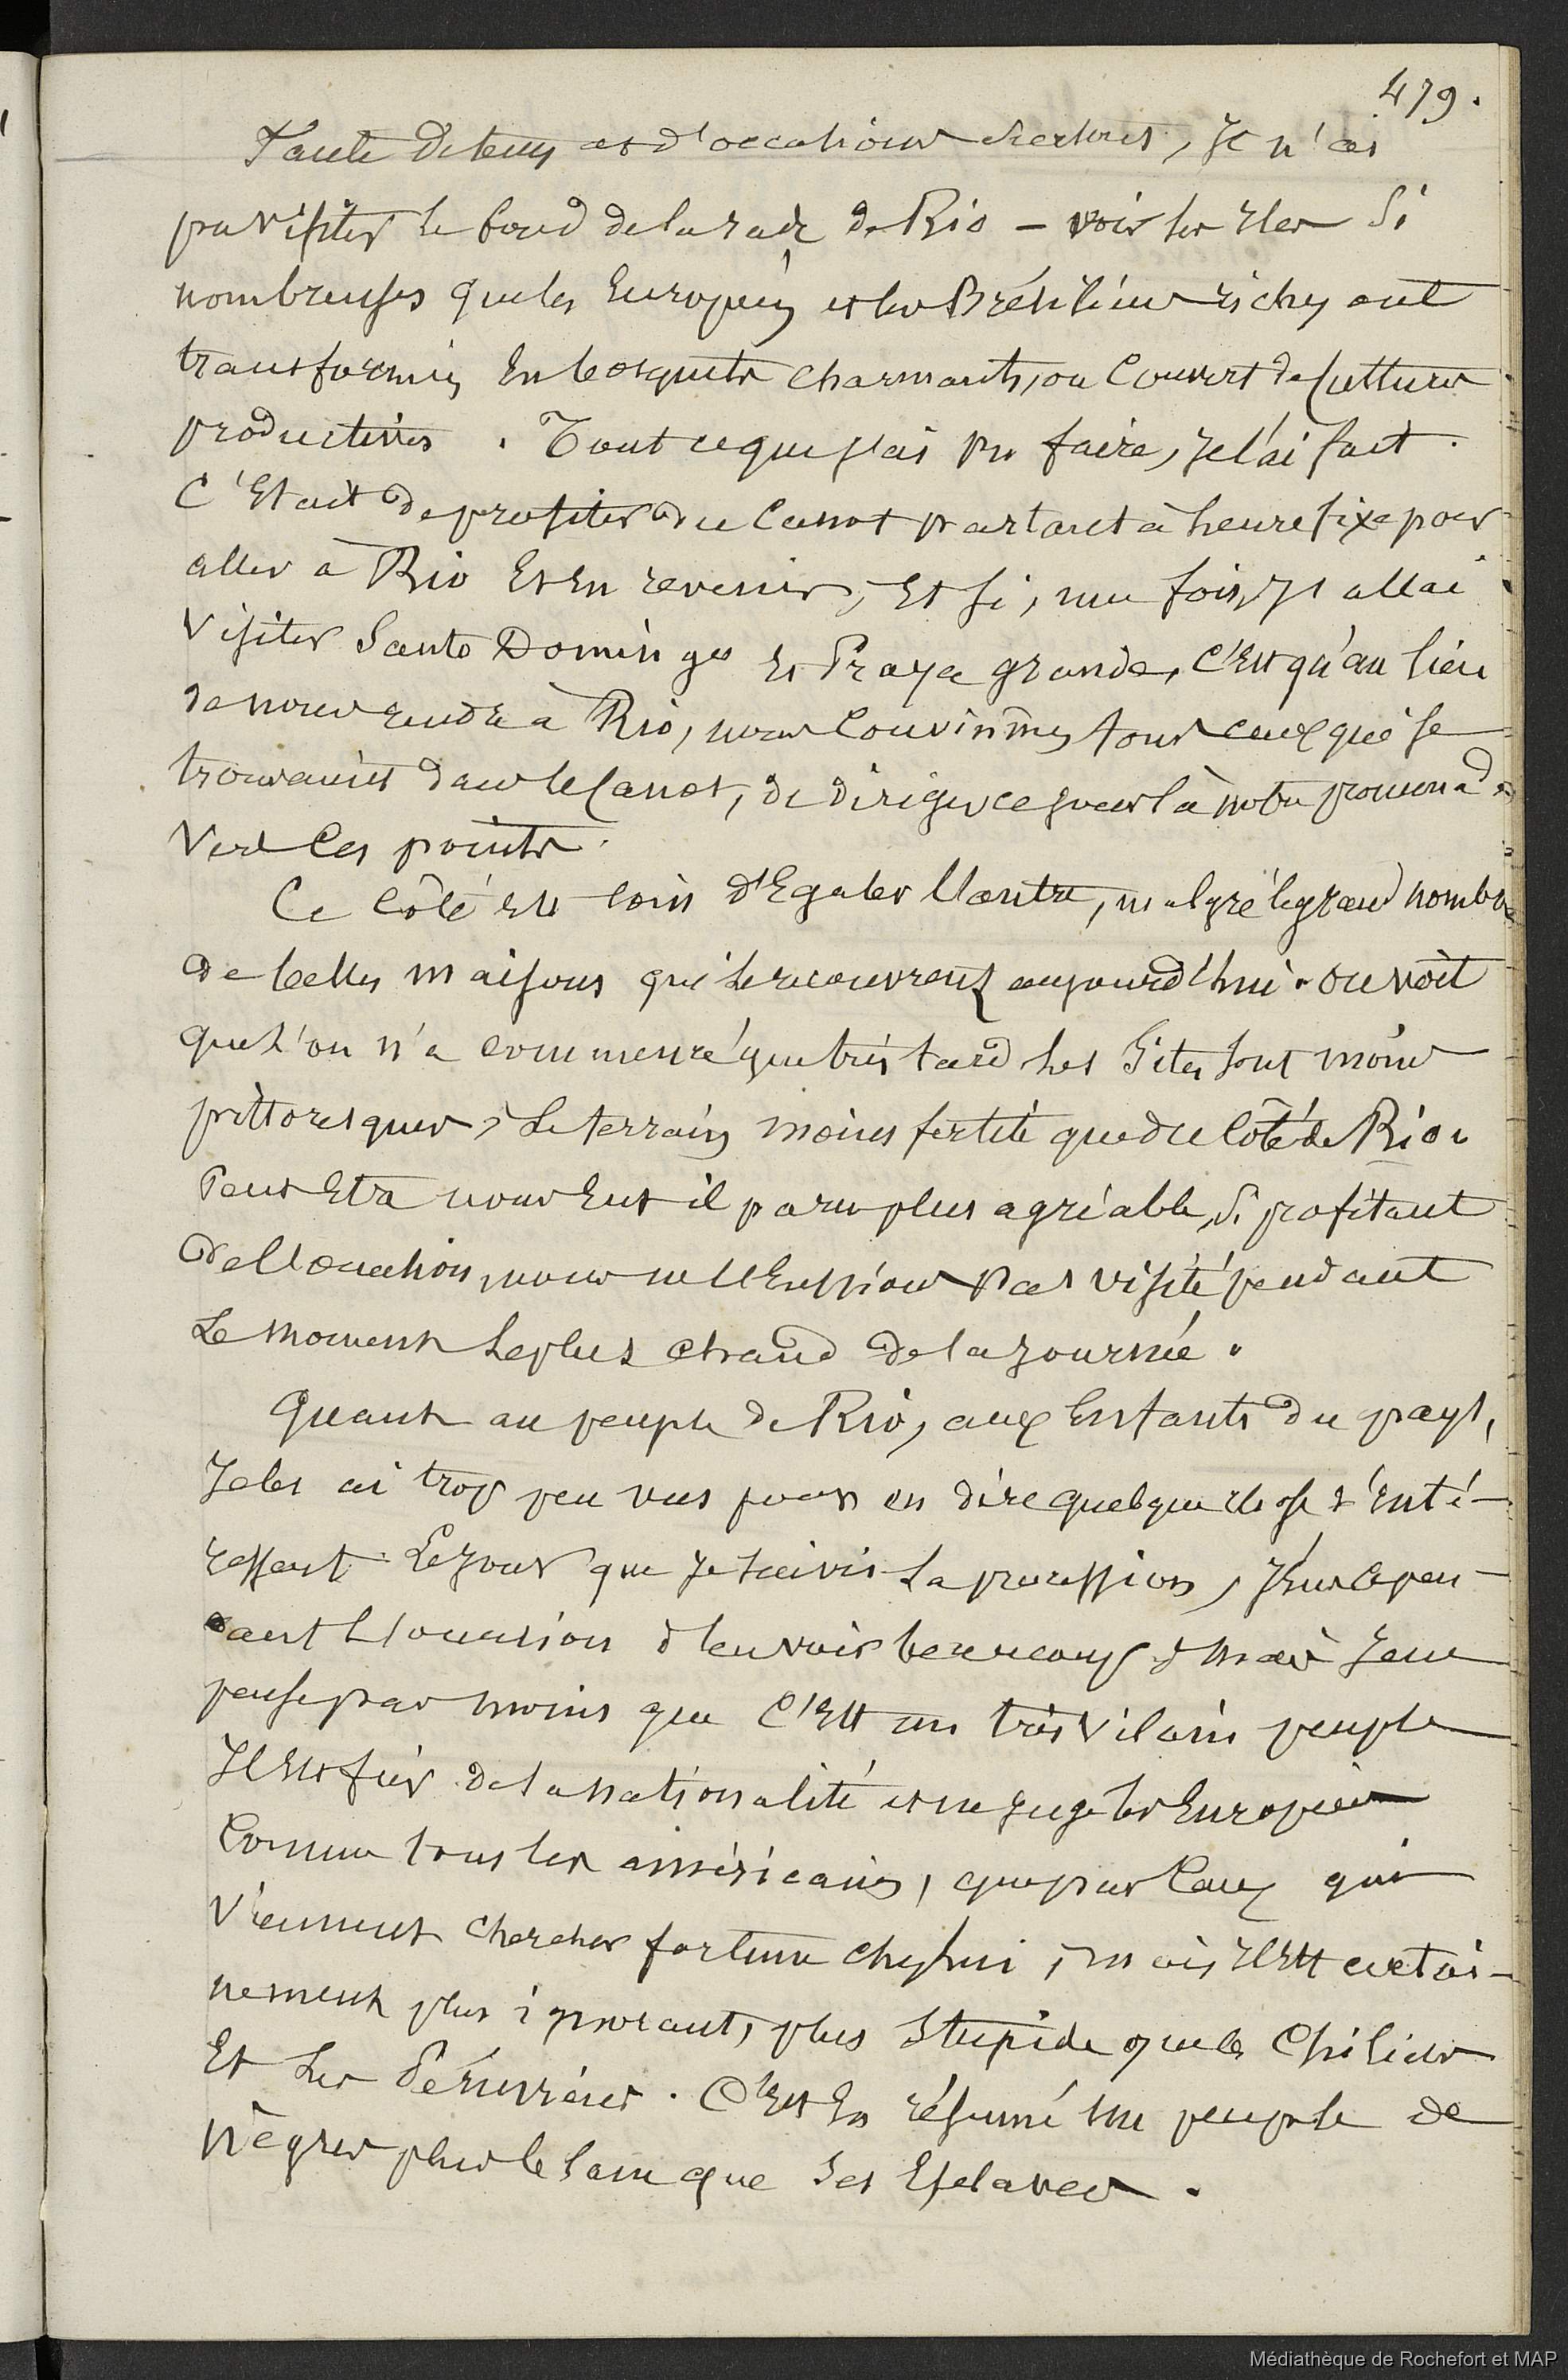 479.
Faute de tems et d'occations diverses, Je n'ai
pu visiter le fond de la rade de Rio – voir les Iles Si
nombreuses que les Européens et les Brésiliens riches ont
transformées En bosquets charmants, ou Couvert de Cultures
productives. Tout ce que j'ai pu faire, Je l'ai fait.
C'Etait de profiter du Canot partant à heure fixe pour
aller à Rio Et En revenir, Et Si, une fois, J'allai
Visiter Santo Domingo Et Praya grande, C'Est qu'au lieu
de nous rendre à Rio, nous Convinmes tous ceux qui se
trouvaient dans le Canot, de diriger ce jour là notre promenade
Vers Ces points.
Ce Côté Est loin d'Egaler l'autre, malgré le grand nombre
de belles maisons qui le recouvrent aujourd'hui. On voit
que l'on n'a commencé que très tard. Les Sites sont moins
pittoresques, Le terrain moins fertile que du Côté de Rio.
Peut Etre nous Eut il paru plus agréable, Si profitant
de l'occation, nous ne l'Eussions pas visité pendant
Le moment Le plus chaud de la journée.
Quant au peuple de Rio, aux Enfants du pays,
Je les ai trop peu vus pour en dire quelque chose d'Inté-
ressant. Le jour que Je suivis La procession, J'Eus Cepen-
dant l'occasion d'en voir beaucoup, mais Je ne
pense pas moins que C'Est un très vilain peuple
Il Est fier de sa nationalité et ne juge les Européens
Comme tous les américains, que par Ceux qui
Viennent chercher fortune chez lui, mais Il Est certai-
nement plus ignorant, plus Stupide que les Chiliens
Et Les Péruviens. C'Est En résumé un peuple de
nègres plus le Sam que Ses Esclaves.
Médiathèque de Rochefort et MAP